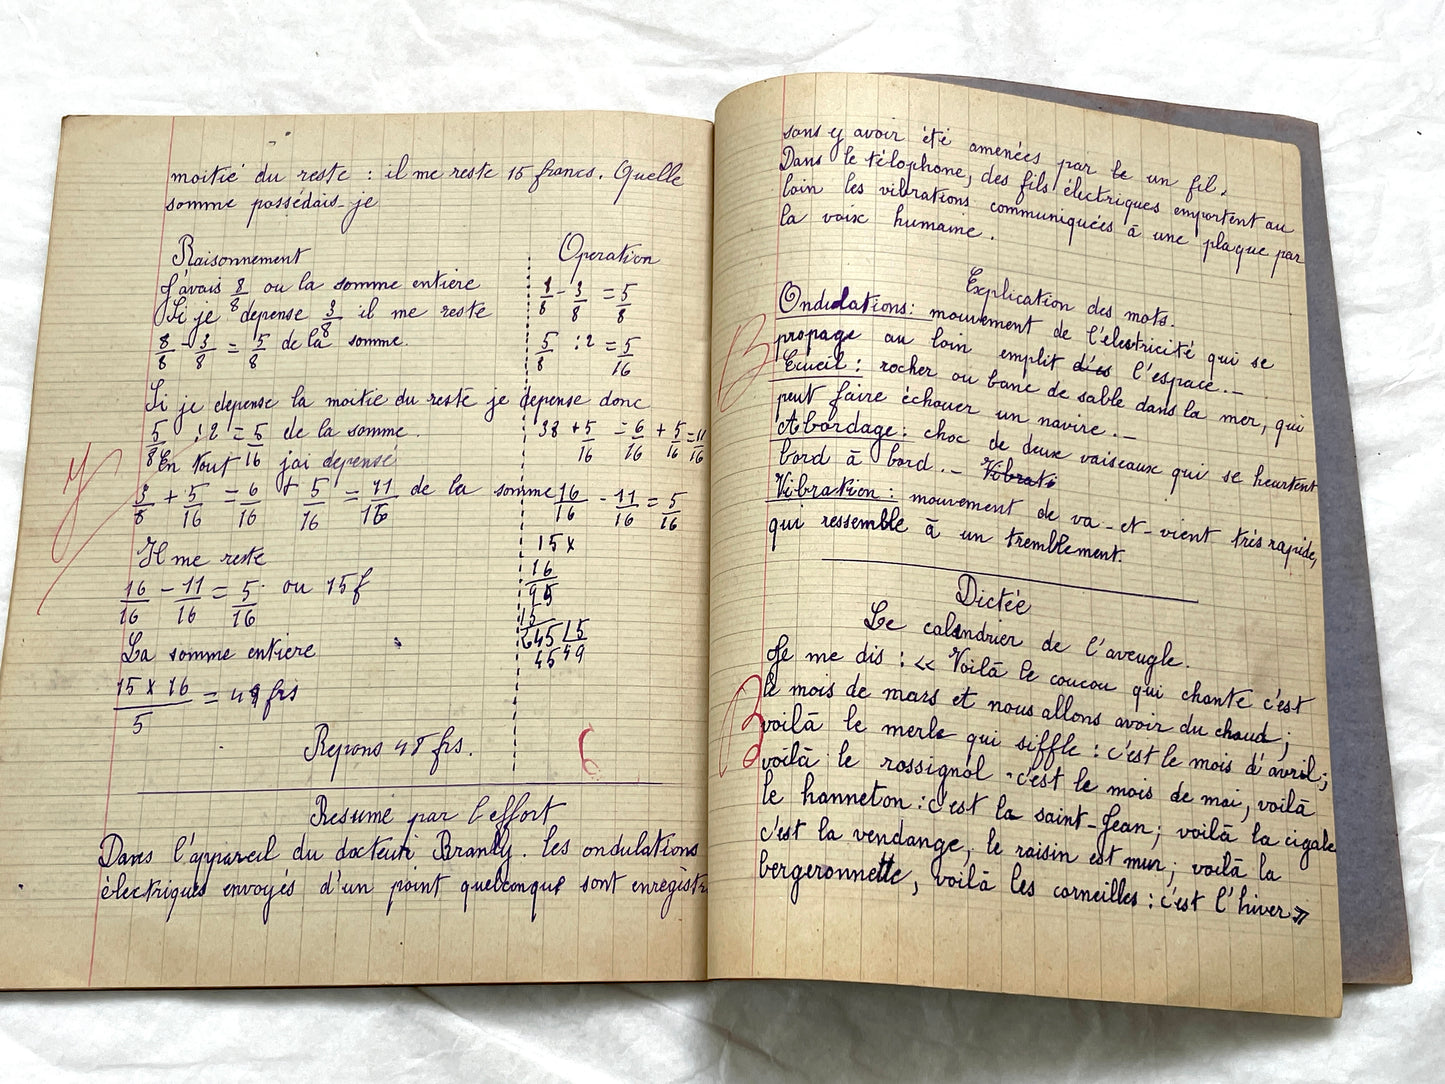 moitié du reste : il me reste 15 francs. Quelle
somme possédais-je
Raisonnement
J'avais 8/8 ou la somme entière
Si je depense 3/8 il me reste
8/8 - 3/8 = 5/8 de la somme.
Si je depense la moitié du reste je depense donc
5/8 : 2 = 5/16 de la somme.
En tout j'ai depensé
3/8 + 5/16 = 6/16 + 5/16 = 11/16 de la somme
Il me reste
16/16 - 11/16 = 5/16 ou 15f
La somme entière
15 x 16 / 5 = 49 frs
Operation
8/8 - 3/8 = 5/8
5/8 : 2 = 5/16
38 + 5/16 = 6/16 + 5/16 = 11/16
16/16 - 11/16 = 5/16
15 x
16
95
15
245 5
45 49
Repons 48 frs.
6
Resumé par l'effort
Dans l'appareil du docteur Branly. les ondulations
électriques envoyés d'un point quelconque sont enregistr
sans y avoir été amenées par le un fil.
Dans le télophone, des fils électriques emportent au
loin les vibrations communiquées à une plaque par
la voix humaine.
Explication des mots.
Ondulations : mouvement de l'électricité qui se
propage au loin emplit d'es l'espace. –
Ecueil : rocher ou banc de sable dans la mer, qui
peut faire échouer un navire. –
Abordage : choc de deux vaiseaux qui se heurtent
bord à bord. – Vibrati
Vibration : mouvement de va-et-vient très rapide,
qui ressemble à un tremblement.
B
Dictée
Le calendrier de l'aveugle.
Je me dis : « Voilà le coucou qui chante c'est
le mois de mars et nous allons avoir du chaud ;
voilà le merle qui siffle : c'est le mois d'avril ;
voilà le rossignol - c'est le mois de mai, voilà
le hanneton : c'est la saint-Jean ; voilà la cigale
c'est la vendange, le raisin est mur ; voilà la
bergeronnette, voilà les corneilles : c'est l'hiver »